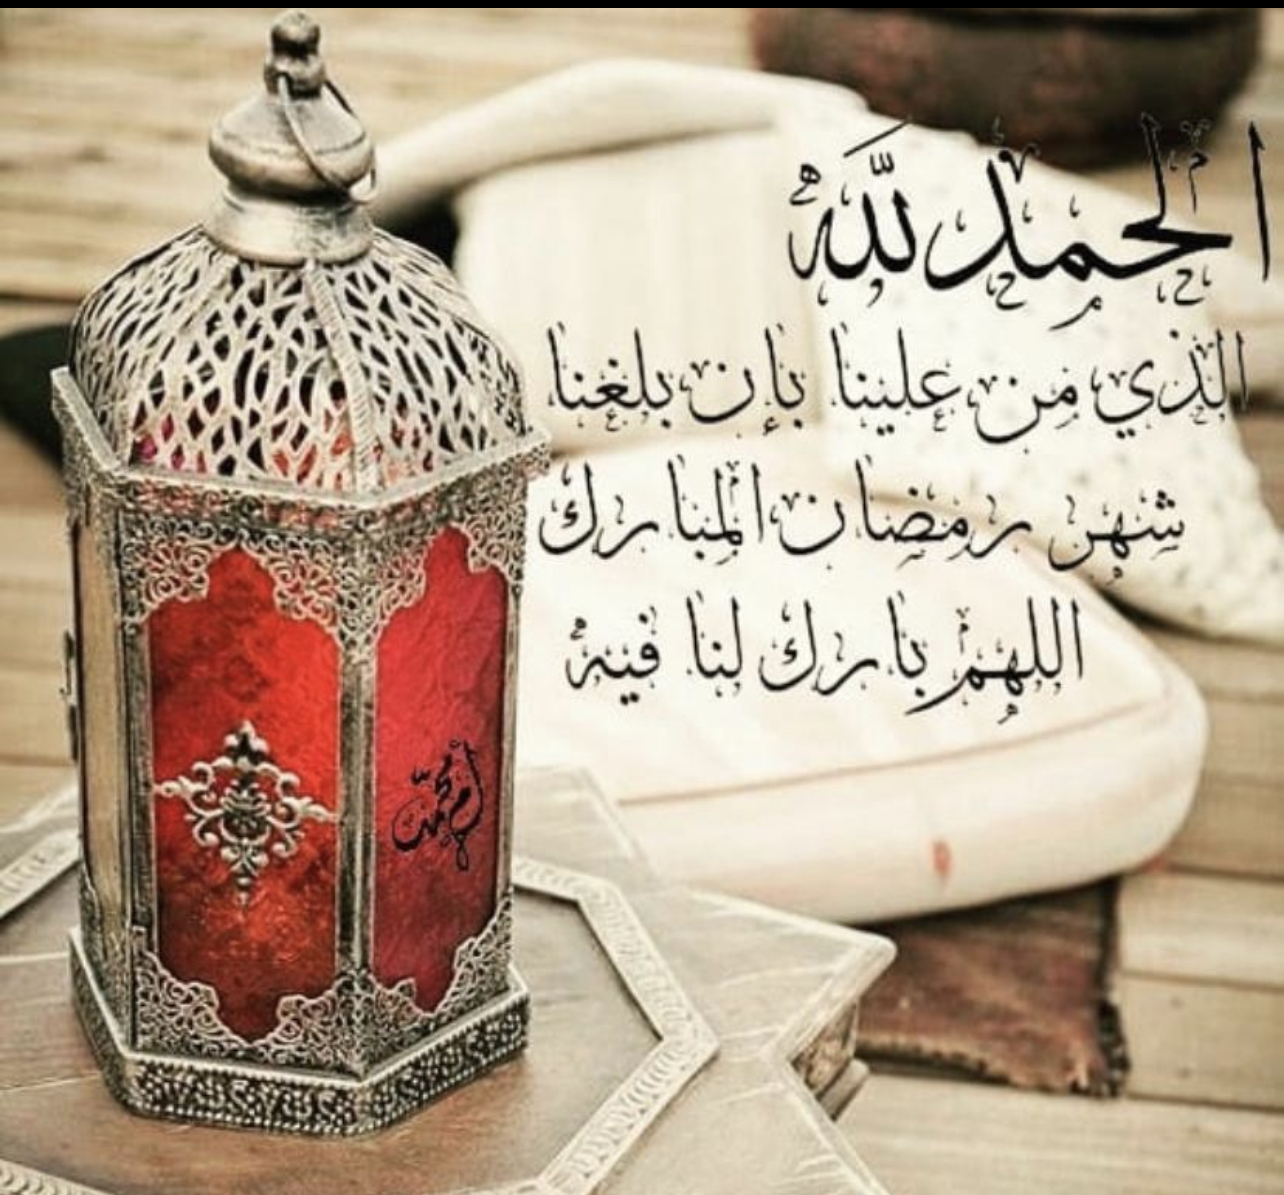 الحمد لله
الذي من علينا بإن بلغنا
شهر رمضان المبارك
اللهم بارك لنا فيه
أم محمد